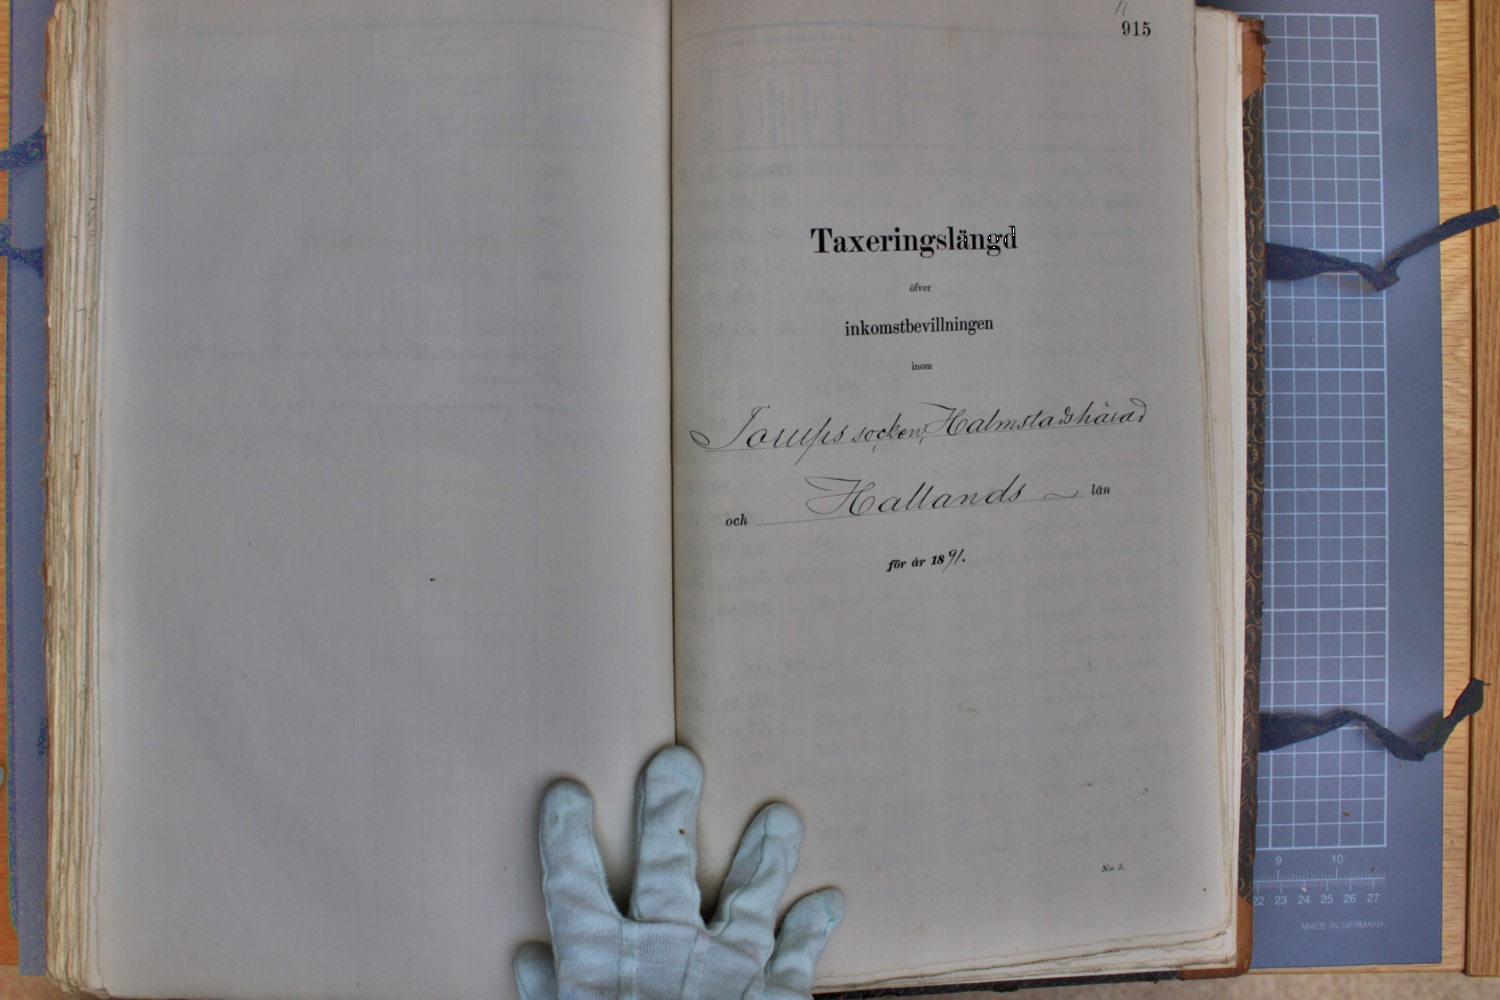 915
Taxeringslängd
öfver
inkomstbevillningen
inom
Torups socken, Halmstads härad
och Hallands län
för år 1891.
N:o 5.
9 10
22 23 24 25 26 27
MADE IN GERMANY